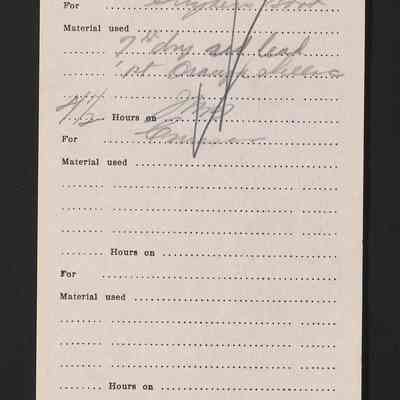 For
Material used
7 # dry red lead
1 pt Orange shellac
4½ Hours on Job
For
Material used
Hours on
For
Material used
Hours on